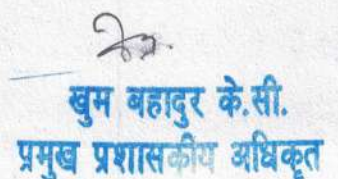 खुम बहादुर के.सी.
प्रमुख प्रशासकीय अधिकृत